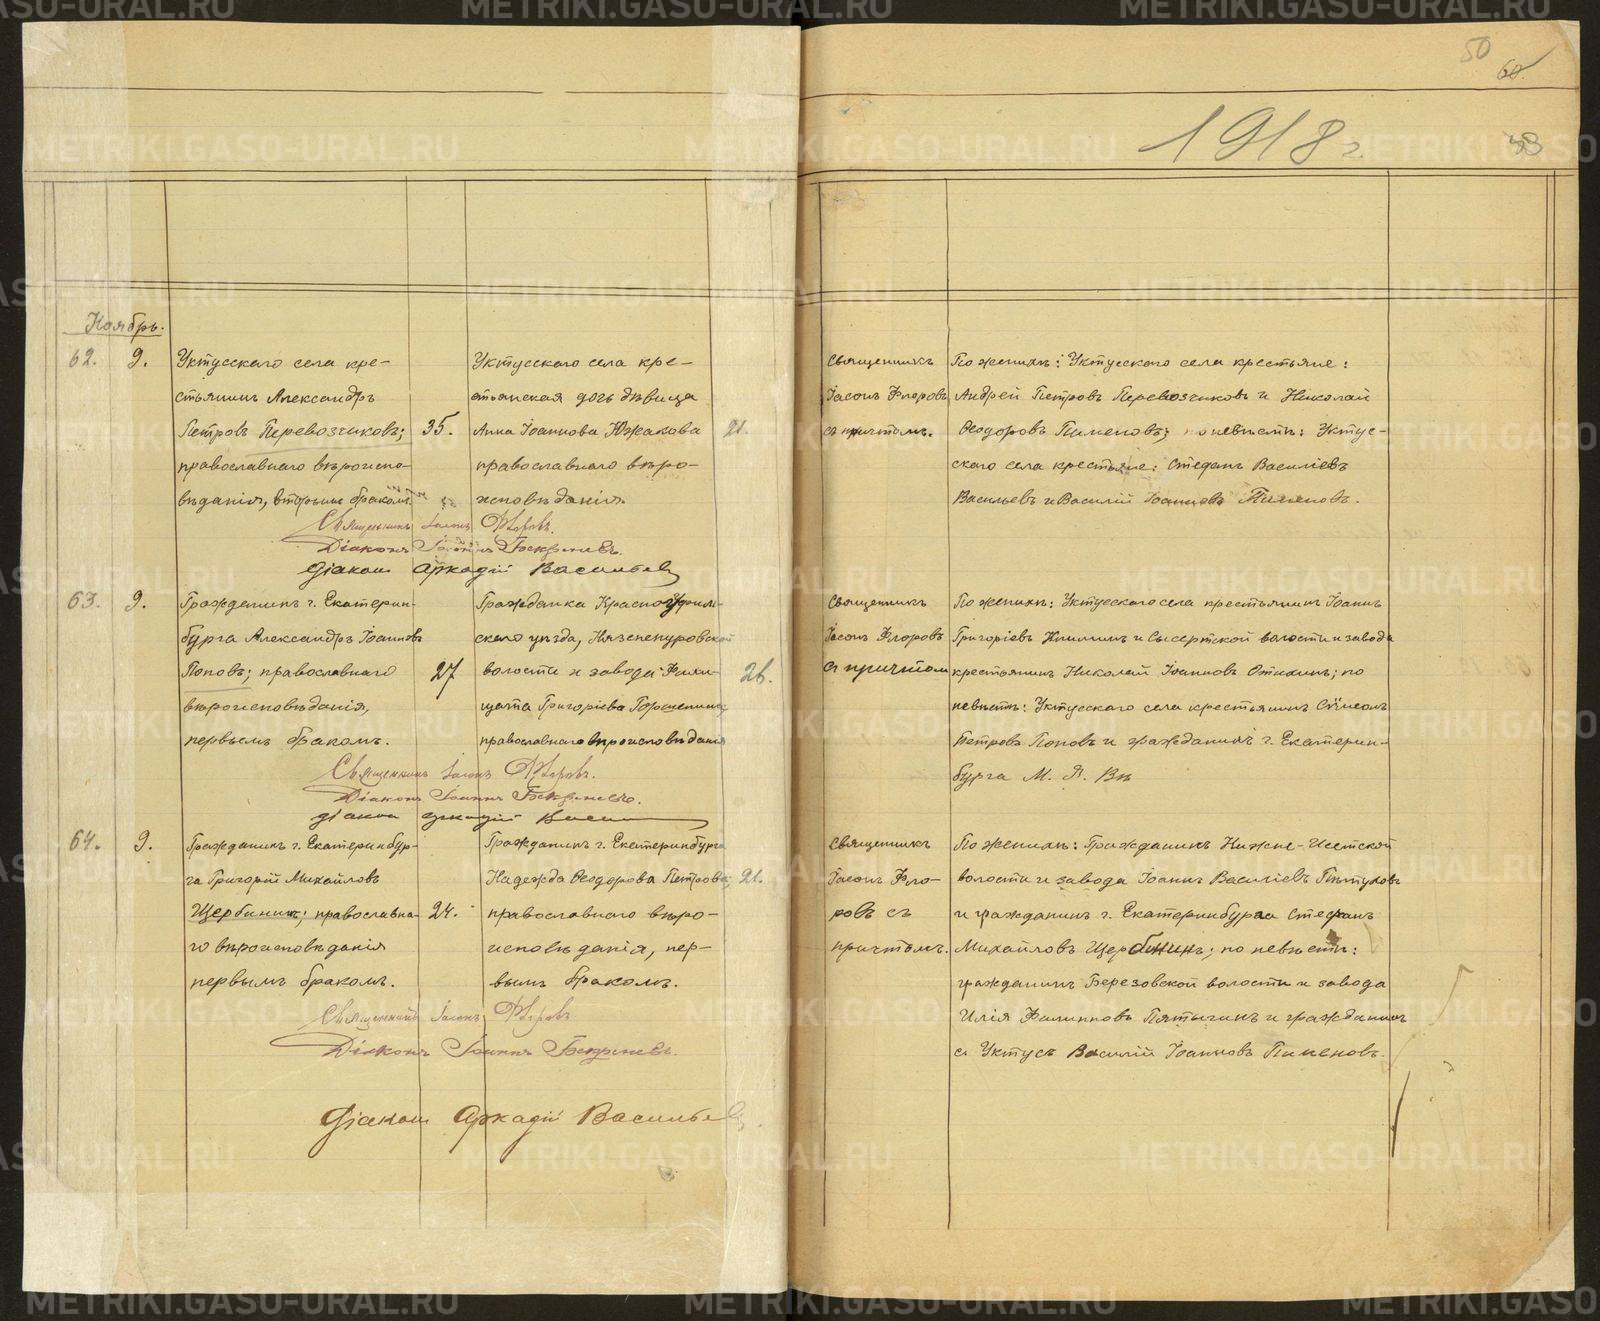 50
60
1918 г.
Ноябрь.
62. 9.
Уктусскаго села кре-
стьянинъ Александръ
Петровъ Перевозчиковъ;
православнаго вѣроиспо-
вѣданія, вторымъ бракомъ.
35.
Уктусскаго села кре-
стьянская дочь дѣвица
Анна Іоаннова Южакова
православнаго вѣро-
исповѣданія.
21.
Священникъ
Іасонъ Флоровъ
съ причтомъ.
По женихѣ: Уктусскаго села крестьяне:
Андрей Петровъ Перевозчиковъ и Николай
Ѳеодоровъ Пименовъ; по невѣстѣ: Уктус-
скаго села крестьяне: Стефанъ Василіевъ
Васильевъ и Василій Іоанновъ Пименовъ.
Священникъ Іасонъ Флоровъ.
Діаконъ Іоаннъ
Діаконъ Аркадій Васильевъ
63. 9.
Гражданинъ г. Екатерин-
бурга Александръ Іоанновъ
Поповъ; православнаго
вѣроисповѣданія,
первымъ бракомъ.
27
Гражданка Красноуфим-
скаго уѣзда,
волости и завода
Григоріева
православнаго вѣроисповѣданія
26.
Священникъ
Іасонъ Флоровъ
съ причтом
По женихѣ: Уктусскаго села крестьянинъ Іоаннъ
Григоріевъ и Сысертской волости и завода
крестьянинъ Николай Іоанновъ по
невѣстѣ: Уктусскаго села крестьянинъ Сѵмеонъ
Петровъ Поповъ и гражданинъ г. Екатерин-
бурга М. Я.
Священникъ Іасонъ Флоровъ.
Діаконъ Іоаннъ
Діакон Аркадій
64. 9.
Гражданинъ г. Екатеринбур-
га Григорій Михайловъ
Щербининъ; православна-
го вѣроисповѣданія
первымъ бракомъ.
24.
Гражданинъ г. Екатеринбурга
Надежда Ѳеодорова Петрова
православнаго вѣро-
исповѣданія, пер-
вымъ бракомъ.
21.
Священникъ
Іасонъ Фло-
ровъ съ
причтомъ.
По женихѣ: Гражданинъ Нижне-Исетской
волости и завода Іоаннъ Василіевъ Пѣтуховъ
и гражданинъ г. Екатеринбурга Стефанъ
Михайловъ Щербининъ; по невѣстѣ:
гражданинъ Березовской волости и завода
Илія Филипповъ Пятыгинъ и гражданинъ
с. Уктусъ Василій Іоанновъ Пименовъ.
Священникъ Іасонъ Флоровъ
Діаконъ Іоаннъ
Діаконъ Аркадій Васильевъ
METRIKI.GASO-URAL.RU